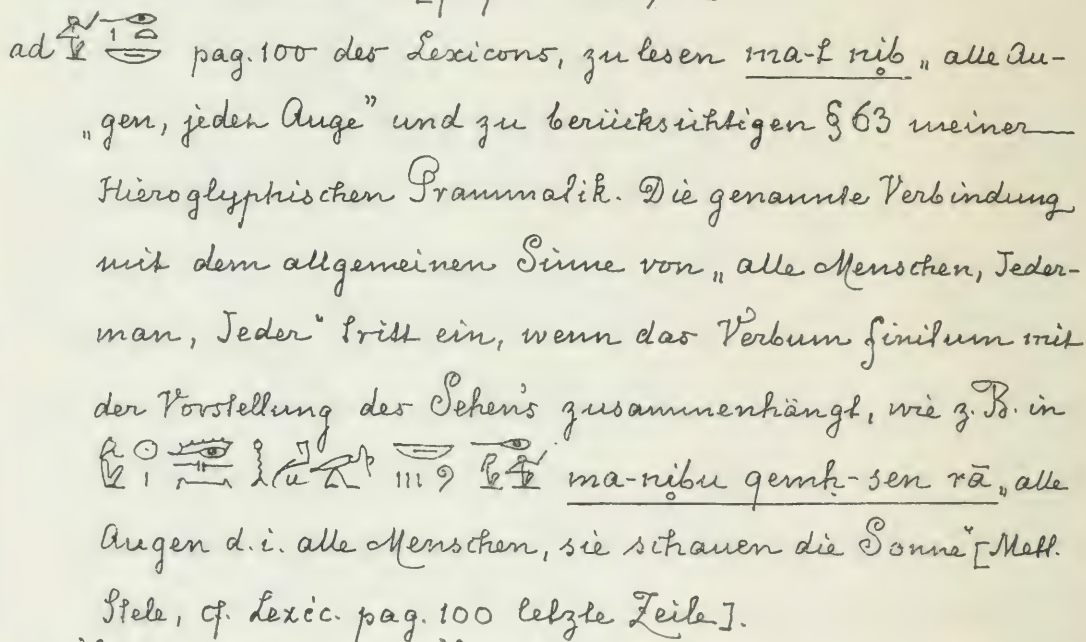 ad pag. 100 des Lexicons, zu lesen ma-t nib „alle Au-
„gen, jedes Auge” und zu berücksichtigen § 63 meiner
Hieroglyphischen Grammatik. Die genannte Verbindung
mit dem allgemeinen Sinne von „alle Menschen, Jeder-
man, Jeder“ tritt ein, wenn das Verbum finitum mit
der Vorstellung des Sehen's zusammenhängt, wie z. B. in
ma-nibu qemḥ-sen rā „alle
Augen d. i. alle Menschen, sie schauen die Sonne“ [Mett.
Stele, cf. Lexic. pag. 100 letzte Zeile].